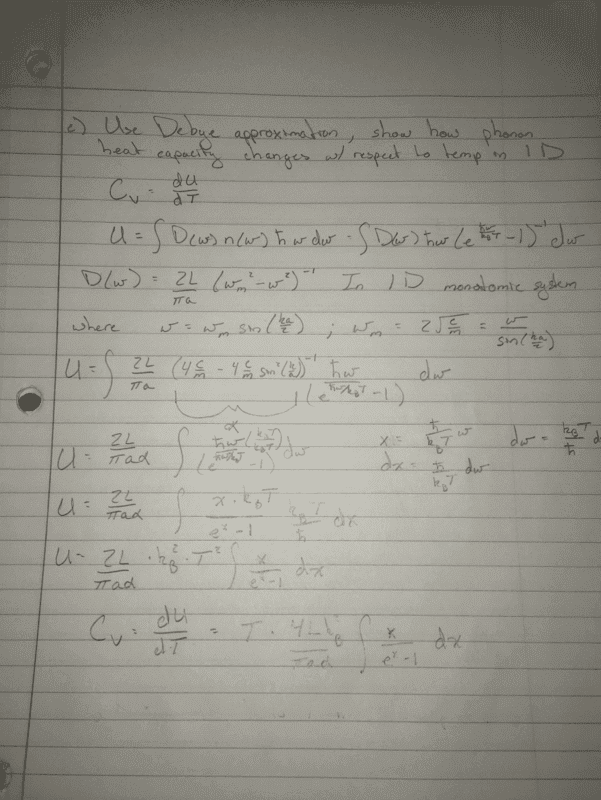 c) Use Debye approximation, show how phonon
heat capacity changes w/ respect to temp in 1D
C_v = dU/dT
U = ∫ D(ω) n(ω) ħ ω dω = ∫ D(ω) ħω (e^(ħω/k_BT) - 1)^-1 dω
D(ω) = 2L/πa (ω_m² - ω²)^-1 In 1D monatomic system
where ω = ω_m sin(ka/2) ; ω_m = 2√(c/m) = ω/sin(ka/2)
U = ∫ 2L/πa (4 c/m - 4 c/m sin²(k/2))^-1 ħω/(e^(ħω/k_BT) - 1) dω
α
U = 2L/πaα ∫ ħω (k_BT/k_BT)/(e^(ħω/k_BT) - 1) dω x = ħ/k_BT ω dω = k_BT/ħ d
dx = ħ/k_BT dω
U = 2L/πaα ∫ x·k_BT/e^x - 1 k_BT/ħ dx
U = 2L/πaα · k_B² · T² ∫ x/e^x - 1 dx
C_v = dU/dT = T · 4Lk_B²/πaα ∫ x/e^x - 1 dx